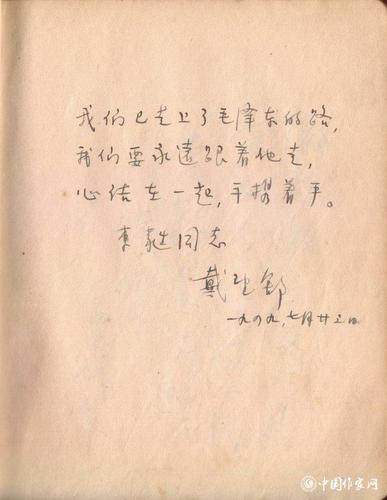 我们已走上了毛泽东的路，
我们要永远跟着他走，
心结在一起，手携着手。
同志
戴望舒
一九四九，七月廿三日
中国作家网